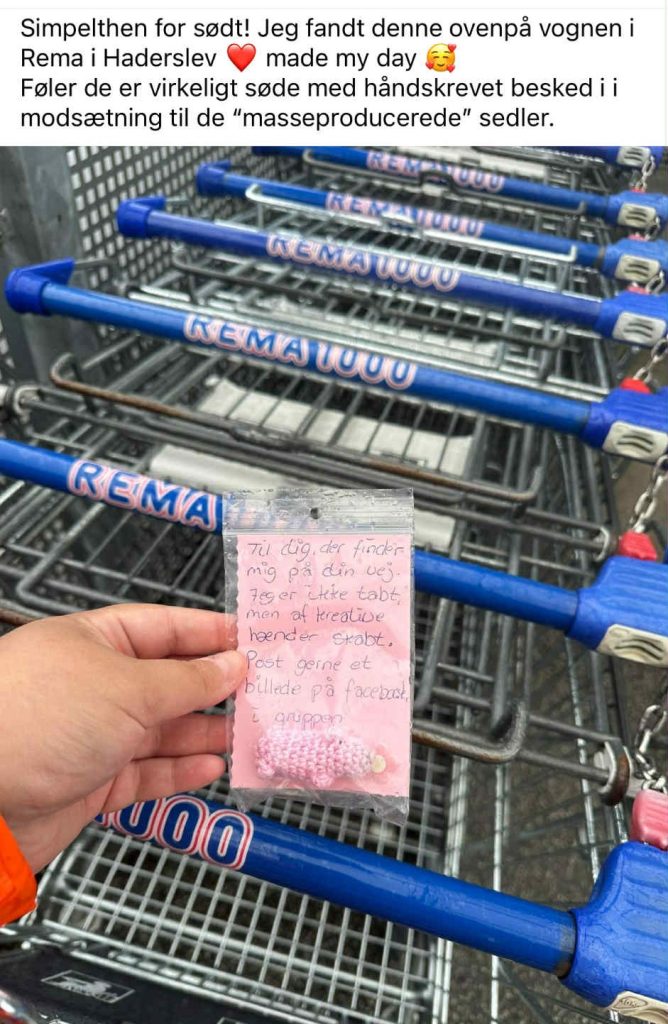 Simpelthen for sødt! Jeg fandt denne ovenpå vognen i
Rema i Haderslev ❤️ made my day 🥰
Føler de er virkeligt søde med håndskrevet besked i i
modsætning til de “masseproducerede” sedler.
REMA 1000
REMA 1000
REMA 1000
REMA 1000
REMA
Til dig, der finder
mig på din vej.
Jeg er ikke tabt,
men af kreative
hænder skabt.
Post gerne et
billede på facebook,
i gruppen
1000